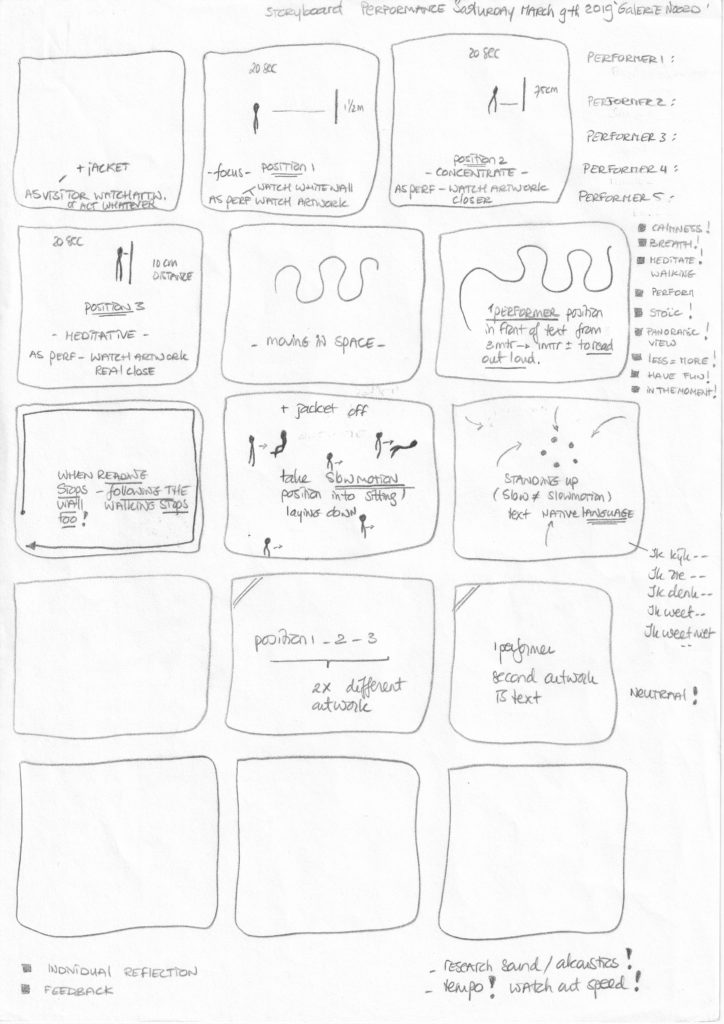 STORYBOARD PERFORMANCE SATURDAY MARCH 9th 2019 'GALERIE NOORD'
+ JACKET
AS VISITOR WATCH ATTN.
or ACT WHATEVER
20 SEC
1½m
- focus - POSITION 1
WATCH WHITE WALL
AS PERF WATCH ARTWORK
20 SEC
75cm
POSITION 2
- CONCENTRATE -
AS PERF - WATCH ARTWORK
CLOSER
PERFORMER 1 :
PERFORMER 2 :
PERFORMER 3 :
PERFORMER 4 :
PERFORMER 5 :
20 SEC
10 cm
DISTANCE
POSITION 3
- MEDITATIVE -
AS PERF - WATCH ARTWORK
REAL CLOSE
- MOVING IN SPACE -
1 PERFORMER position
in front of text from
2 mtr → 1 mtr ± to read
out loud.
CALMNESS!
BREATH!
MEDITATE!
WALKING
PERFORM
STOÏC!
PANORAMIC!
VIEW
LESS = MORE!
HAVE FUN!
IN THE MOMENT!
WHEN READING
STOPS - FOLLOWING THE
WALL WALKING STOPS
TOO!
+ jacket off
take SLOWMOTION
position into sitting/
laying down
STANDING UP
(Slow ≠ slowmotion)
text NATIVE LANGUAGE
Ik kijk --
Ik zie --
Ik denk --
Ik weet --
Ik weet niet
--
position 1 - 2 - 3
2x different
artwork
1 performer
second artwork
IS text
NEUTRAAL!
INDIVIDUAL REFLECTION
FEEDBACK
- RESEARCH Sound / akoustics!
- tempo! WATCH out speed!